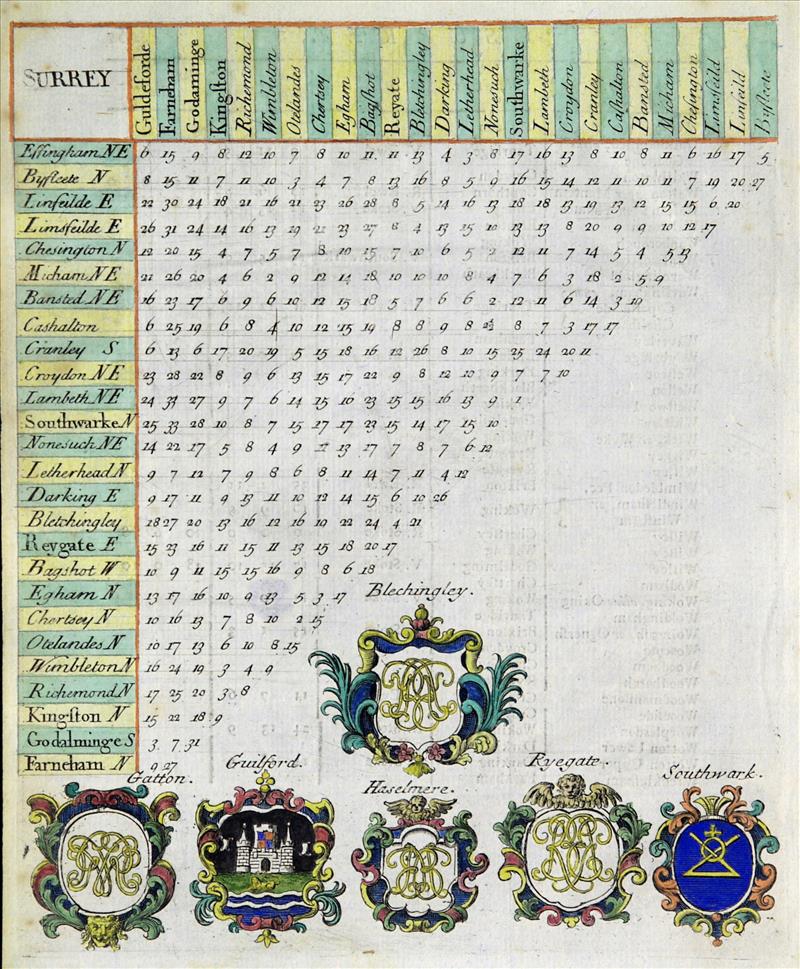 SURREY Guldeforde Farneham Godalminge Kingston Richemond Wimbleton Otelandes Chertsey Egham Bagshot Reyate Bletchingley Darking Letherhead Nonesuch Southwarke Lambeth Croydon Cranley Cashalton Bansted Micham Chesington Limsfeild Linfeild Byfleete
Effingham NE 6 15 9 8 12 10 7 8 10 11 11 13 4 3 8 17 16 13 8 10 8 11 6 16 17 5
Byfleete N 8 15 11 7 11 10 3 4 7 8 13 16 8 5 9 16 15 14 12 11 10 11 7 19 20 27
Linfeilde E 22 30 24 18 21 16 21 23 26 28 8 5 14 16 13 18 18 13 19 13 12 15 15 6 20
Limsfeilde E 26 31 24 14 16 13 19 21 23 27 8 4 13 15 10 13 13 8 20 9 9 10 12 17
Chesington N 12 20 15 4 7 5 7 8 10 15 7 10 6 5 2 12 11 7 14 5 4 5 13
Micham NE 21 26 20 4 6 2 9 12 14 18 10 10 10 8 4 7 6 3 18 2 5 9
Bansted NE 16 23 17 6 9 6 10 12 15 18 5 7 6 6 2 12 11 6 14 3 19
Cashalton 6 25 19 6 8 4 10 12 15 19 8 8 9 8 2½ 8 7 3 17 17
Cranley S 6 13 6 17 20 19 5 15 18 16 12 26 8 10 15 25 24 20 11
Croydon NE 23 28 22 8 9 6 13 15 17 22 9 8 12 10 9 7 7 10
Lambeth NE 24 31 27 9 7 6 14 15 16 23 15 15 16 13 9 1
Southwarke N 25 33 28 10 8 7 15 17 17 23 15 14 17 15 10
Nonesuch NE 14 22 17 5 8 4 9 13 17 7 8 7 6 12
Letherhead N 9 7 12 7 9 8 6 8 11 14 7 11 4 12
Darking E 9 17 11 9 13 11 10 12 14 15 6 10 26
Bletchingley 18 27 20 13 16 12 16 19 22 24 4 21
Reygate E 15 23 16 11 15 11 13 15 18 20 17
Bagshot W 10 9 11 15 15 16 9 8 6 18
Egham N 13 17 16 10 9 13 5 3 17
Blechingley.
Chertsey N 10 16 13 7 8 10 2 15
Otelandes N 10 17 13 6 10 8 15
Wimbleton N 16 24 19 3 4 9
Richemond N 17 25 20 3 8
Kingston N 15 22 18 9
Godalminge S 3 7 31
Farneham N 9 27
Gatton. Guilford. Haselmere. Ryegate. Southwark.